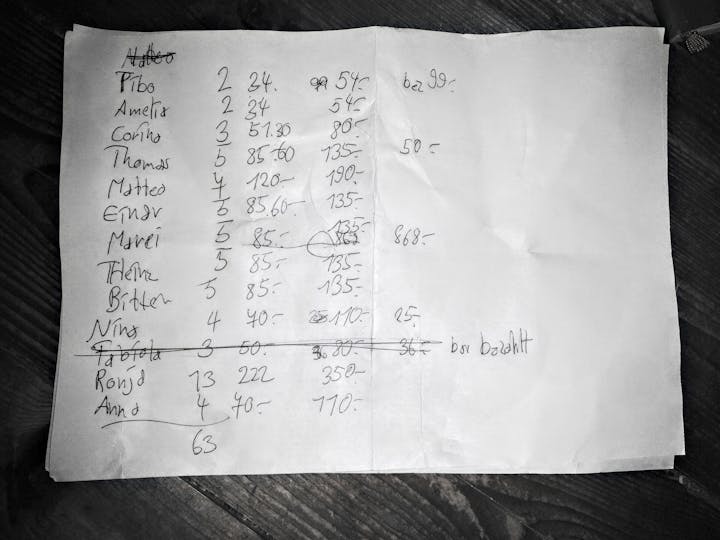 Pibo 2 34. 54.- bar 99.-
Amelia 2 34 54.-
Corina 3 51.30 80.-
Thomas 5 85.60 135.- 50.-
Matteo 7 120.- 190.-
Einar 5 85.60.- 135.-
Marei 5 85.- 135.- 868.-
Heinz 5 85.- 135.-
Bitten 5 85.- 135.-
Nina 4 70.- 110.- 25.-
Fabiola 3 50.- 80.- 36.- bar bezahlt
Ronja 13 222 350.-
Anna 4 70.- 110.-
63